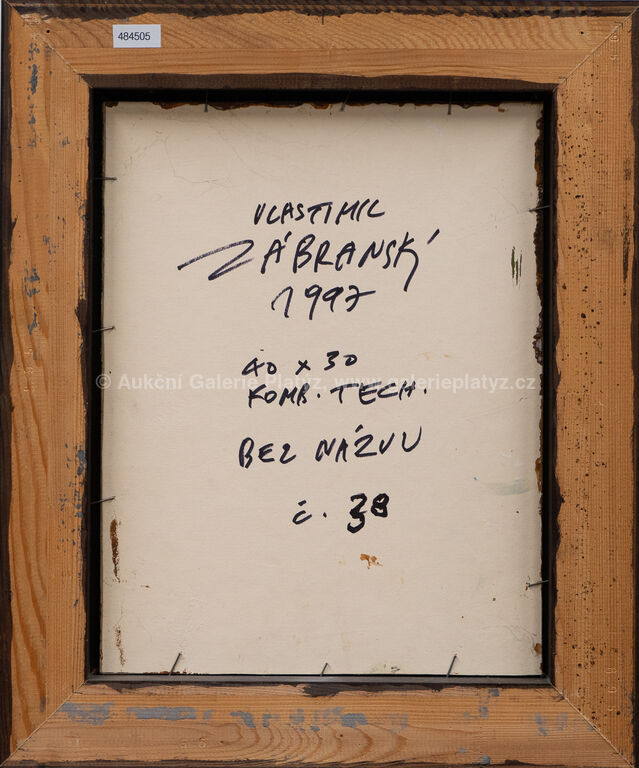 484505
VLASTIMIL
ZÁBRANSKÝ
1997
40 x 30
© Aukční Galerie Platýz, www.galerieplatyz.cz
KOMB. TECH.
BEZ NÁZVU
č. 38